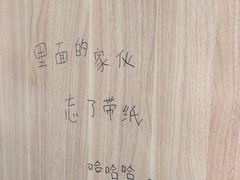 里面的家伙
忘了带纸
哈哈哈